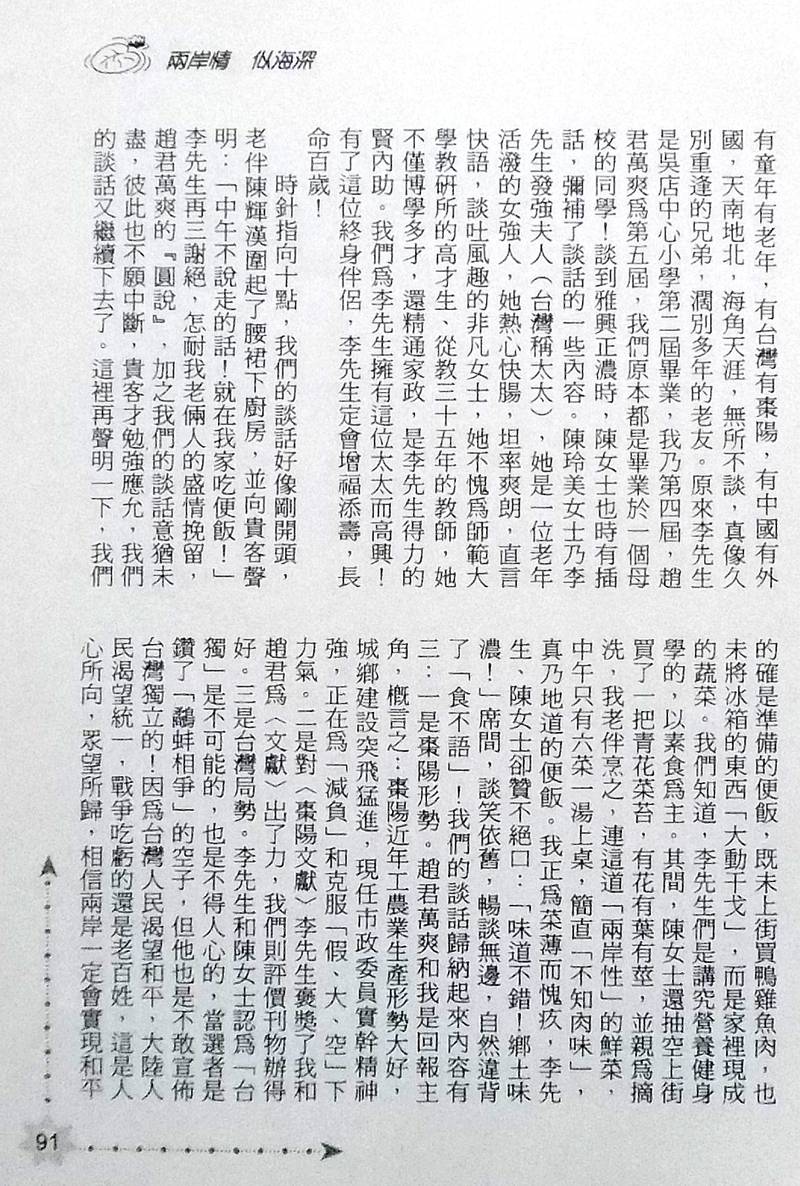 兩岸情　似海深
有童年有老年，有台灣有棗陽，有中國有外
國，天南地北，海角天涯，無所不談，真像久
別重逢的兄弟，濶別多年的老友。原來李先生
是吳店中心小學第二屆畢業，我乃第四屆，趙
君萬爽爲第五屆，我們原本都是畢業於一個母
校的同學！談到雅興正濃時，陳女士也時有插
話，彌補了談話的一些內容。陳玲美女士乃李
先生發強夫人（台灣稱太太），她是一位老年
活潑的女強人，她熱心快腸，坦率爽朗，直言
快語，談吐風趣的非凡女士，她不愧爲師範大
學教研所的高才生、從教三十五年的教師，她
不僅博學多才，還精通家政，是李先生得力的
賢內助。我們爲李先生擁有這位太太而高興！
有了這位終身伴侶，李先生定會增福添壽，長
命百歲！
時針指向十點，我們的談話好像剛開頭，
老伴陳輝漢圍起了腰裙下廚房，並向貴客聲
明：「中午不說走的話！就在我家吃便飯！」
李先生再三謝絕，怎耐我老倆人的盛情挽留，
趙君萬爽的『圓說』，加之我們的談話意猶未
盡，彼此也不願中斷，貴客才勉強應允，我們
的談話又繼續下去了。這裡再聲明一下，我們
的確是準備的便飯，既未上街買鴨雞魚肉，也
未將冰箱的東西「大動干戈」，而是家裡現成
的蔬菜。我們知道，李先生們是講究營養健身
學的，以素食爲主。其間，陳女士還抽空上街
買了一把青花菜苔，有花有葉有莖，並親爲摘
洗，我老伴烹之，連這道「兩岸性」的鮮菜，
中午只有六菜一湯上桌，簡直「不知肉味」，
真乃地道的便飯。我正爲菜薄而愧疚，李先
生、陳女士卻贊不絕口：「味道不錯！鄉土味
濃！」席間，談笑依舊，暢談無邊，自然違背
了「食不語」！我們的談話歸納起來內容有
三：一是棗陽形勢。趙君萬爽和我是回報主
角，概言之：棗陽近年工農業生產形勢大好，
城鄉建設突飛猛進，現任市政委員實幹精神
強，正在爲「減負」和克服「假、大、空」下
力氣。二是對〈棗陽文獻〉李先生褒獎了我和
趙君爲〈文獻〉出了力，我們則評價刊物辦得
好。三是台灣局勢。李先生和陳女士認爲「台
獨」是不可能的，也是不得人心的，當選者是
鑽了「鷸蚌相爭」的空子，但他也是不敢宣佈
台灣獨立的！因爲台灣人民渴望和平，大陸人
民渴望統一，戰爭吃虧的還是老百姓，這是人
心所向，眾望所歸，相信兩岸一定會實現和平
91